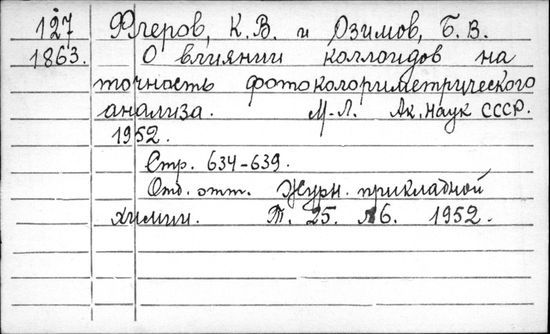 127 Флеров, К. В. и Озимов, Б. В.
1863. О влиянии коллоидов на
точность фотоколориметрического
анализа. М.-Л. Ак. наук СССР.
1952.
Стр. 634-639.
Отд. отт. Журн. прикладной
химии. Т. 25. №6. 1952.